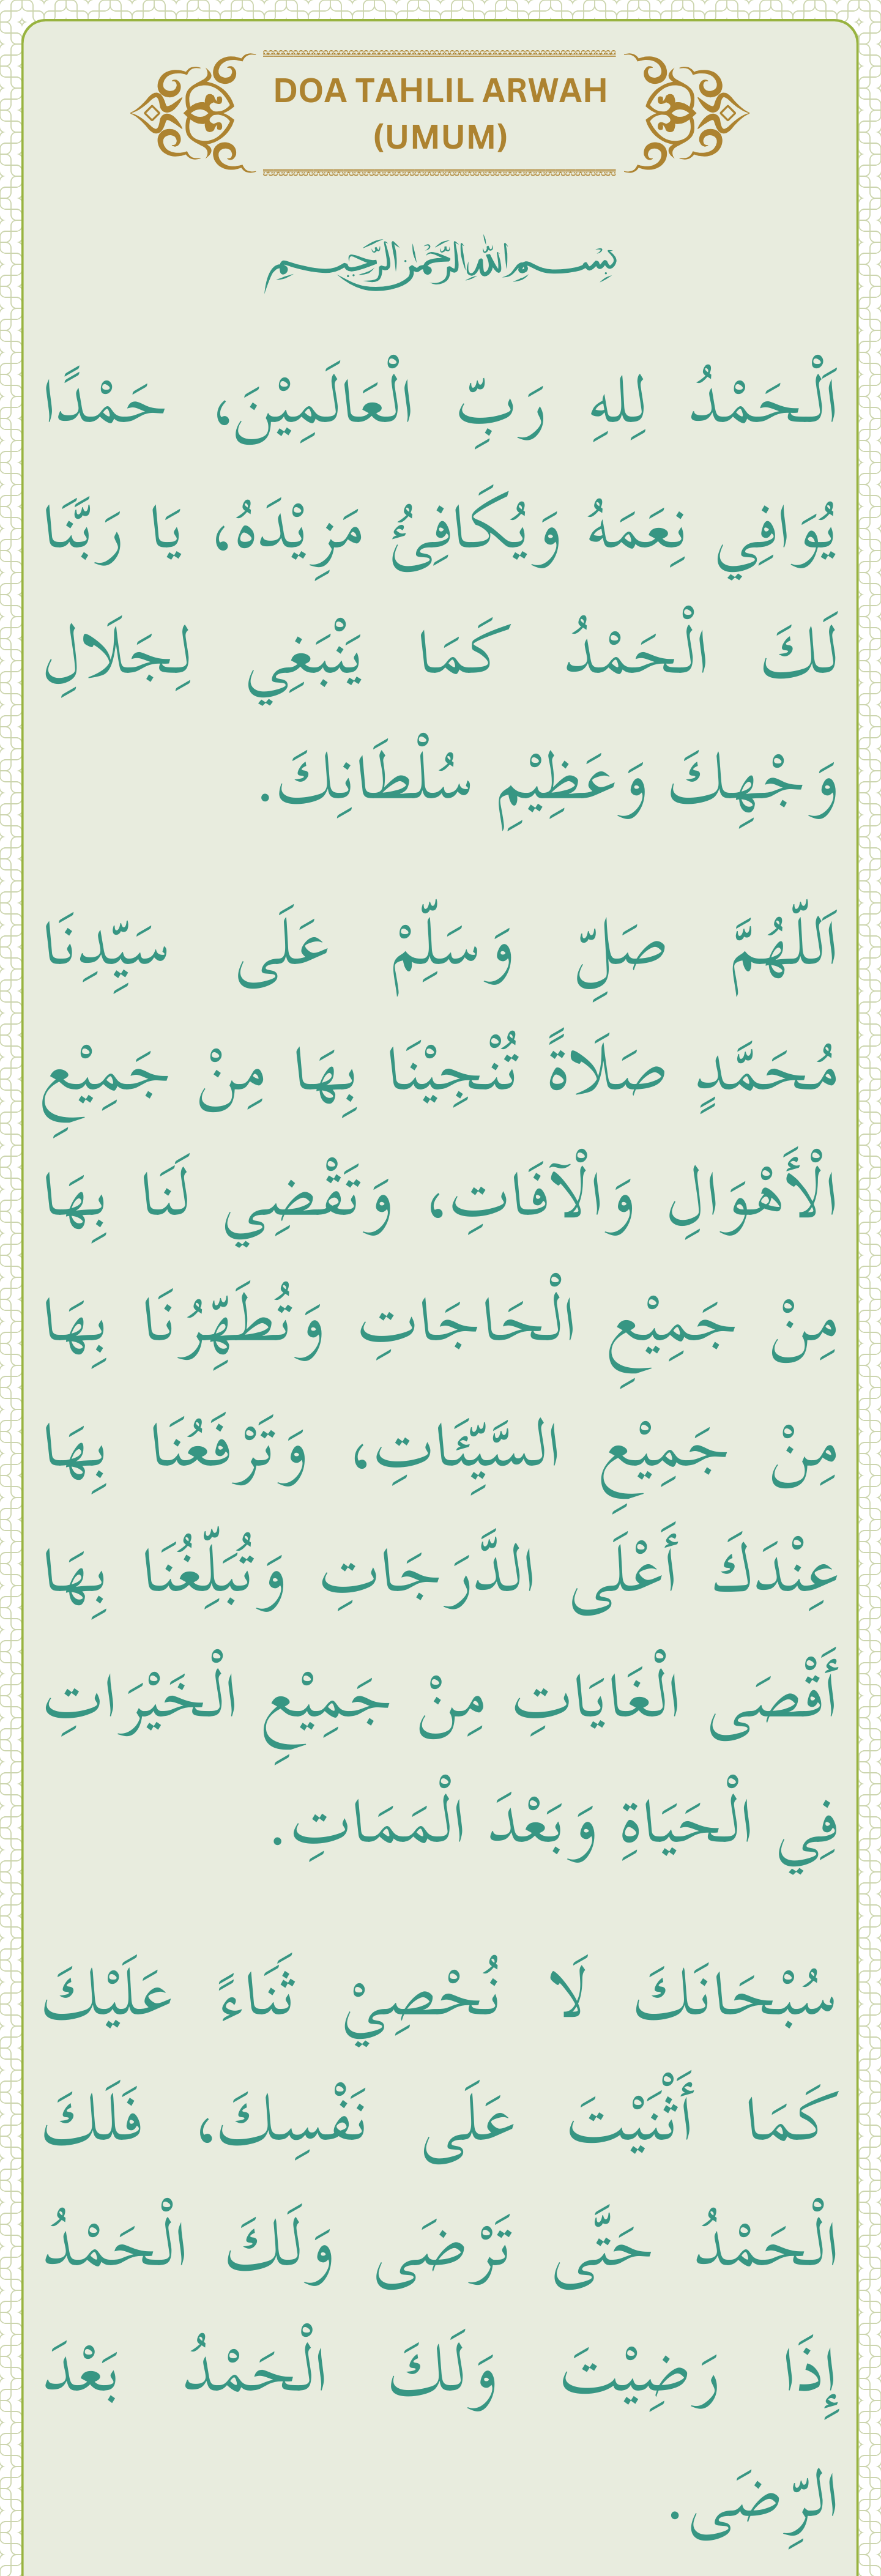 DOA TAHLIL ARWAH
(UMUM)
بِسْمِ اللهِ الرَّحْمٰنِ الرَّحِيْمِ
اَلْحَمْدُ لِلهِ رَبِّ الْعَالَمِيْنَ، حَمْدًا
يُوَافِي نِعَمَهُ وَيُكَافِئُ مَزِيْدَهُ، يَا رَبَّنَا
لَكَ الْحَمْدُ كَمَا يَنْبَغِي لِجَلَالِ
وَجْهِكَ وَعَظِيْمِ سُلْطَانِكَ.
اَللّهُمَّ صَلِّ وَسَلِّمْ عَلَى سَيِّدِنَا
مُحَمَّدٍ صَلَاةً تُنْجِيْنَا بِهَا مِنْ جَمِيْعِ
الْأَهْوَالِ وَالْآفَاتِ، وَتَقْضِي لَنَا بِهَا
مِنْ جَمِيْعِ الْحَاجَاتِ وَتُطَهِّرُنَا بِهَا
مِنْ جَمِيْعِ السَّيِّئَاتِ، وَتَرْفَعُنَا بِهَا
عِنْدَكَ أَعْلَى الدَّرَجَاتِ وَتُبَلِّغُنَا بِهَا
أَقْصَى الْغَايَاتِ مِنْ جَمِيْعِ الْخَيْرَاتِ
فِي الْحَيَاةِ وَبَعْدَ الْمَمَاتِ.
سُبْحَانَكَ لَا نُحْصِيْ ثَنَاءً عَلَيْكَ
كَمَا أَثْنَيْتَ عَلَى نَفْسِكَ، فَلَكَ
الْحَمْدُ حَتَّى تَرْضَى وَلَكَ الْحَمْدُ
إِذَا رَضِيْتَ وَلَكَ الْحَمْدُ بَعْدَ
الرِّضَى.